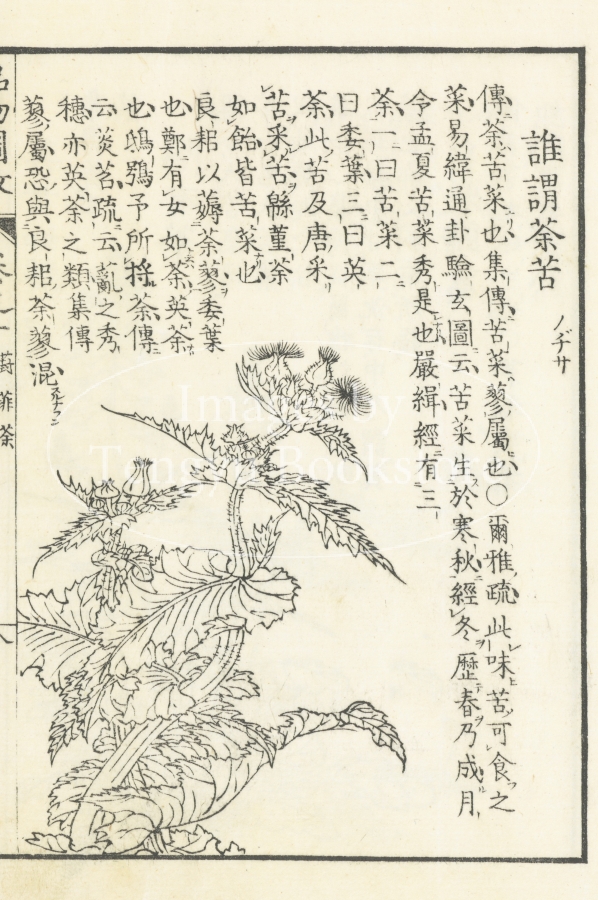 誰謂荼苦 ノゲサ
傳荼苦菜也集傳苦菜蓼屬也○爾雅疏此味苦可食之
菜易緯通卦驗玄圖云苦菜生於寒秋經冬歷春乃成月
令孟夏苦菜秀是也嚴緝經有三
荼一曰苦菜二
曰委葉三曰英
荼此苦及唐采
苦采苦緜菫荼
如飴皆苦菜也
良耜以薅荼蓼委葉
也鄭有女如荼英荼
也鴟鴞予所捋荼傳
云萑苕疏云薍之秀
穗亦英荼之類集傳
蓼屬恐與良耜荼蓼混
Images by
Tengyu Bookstore